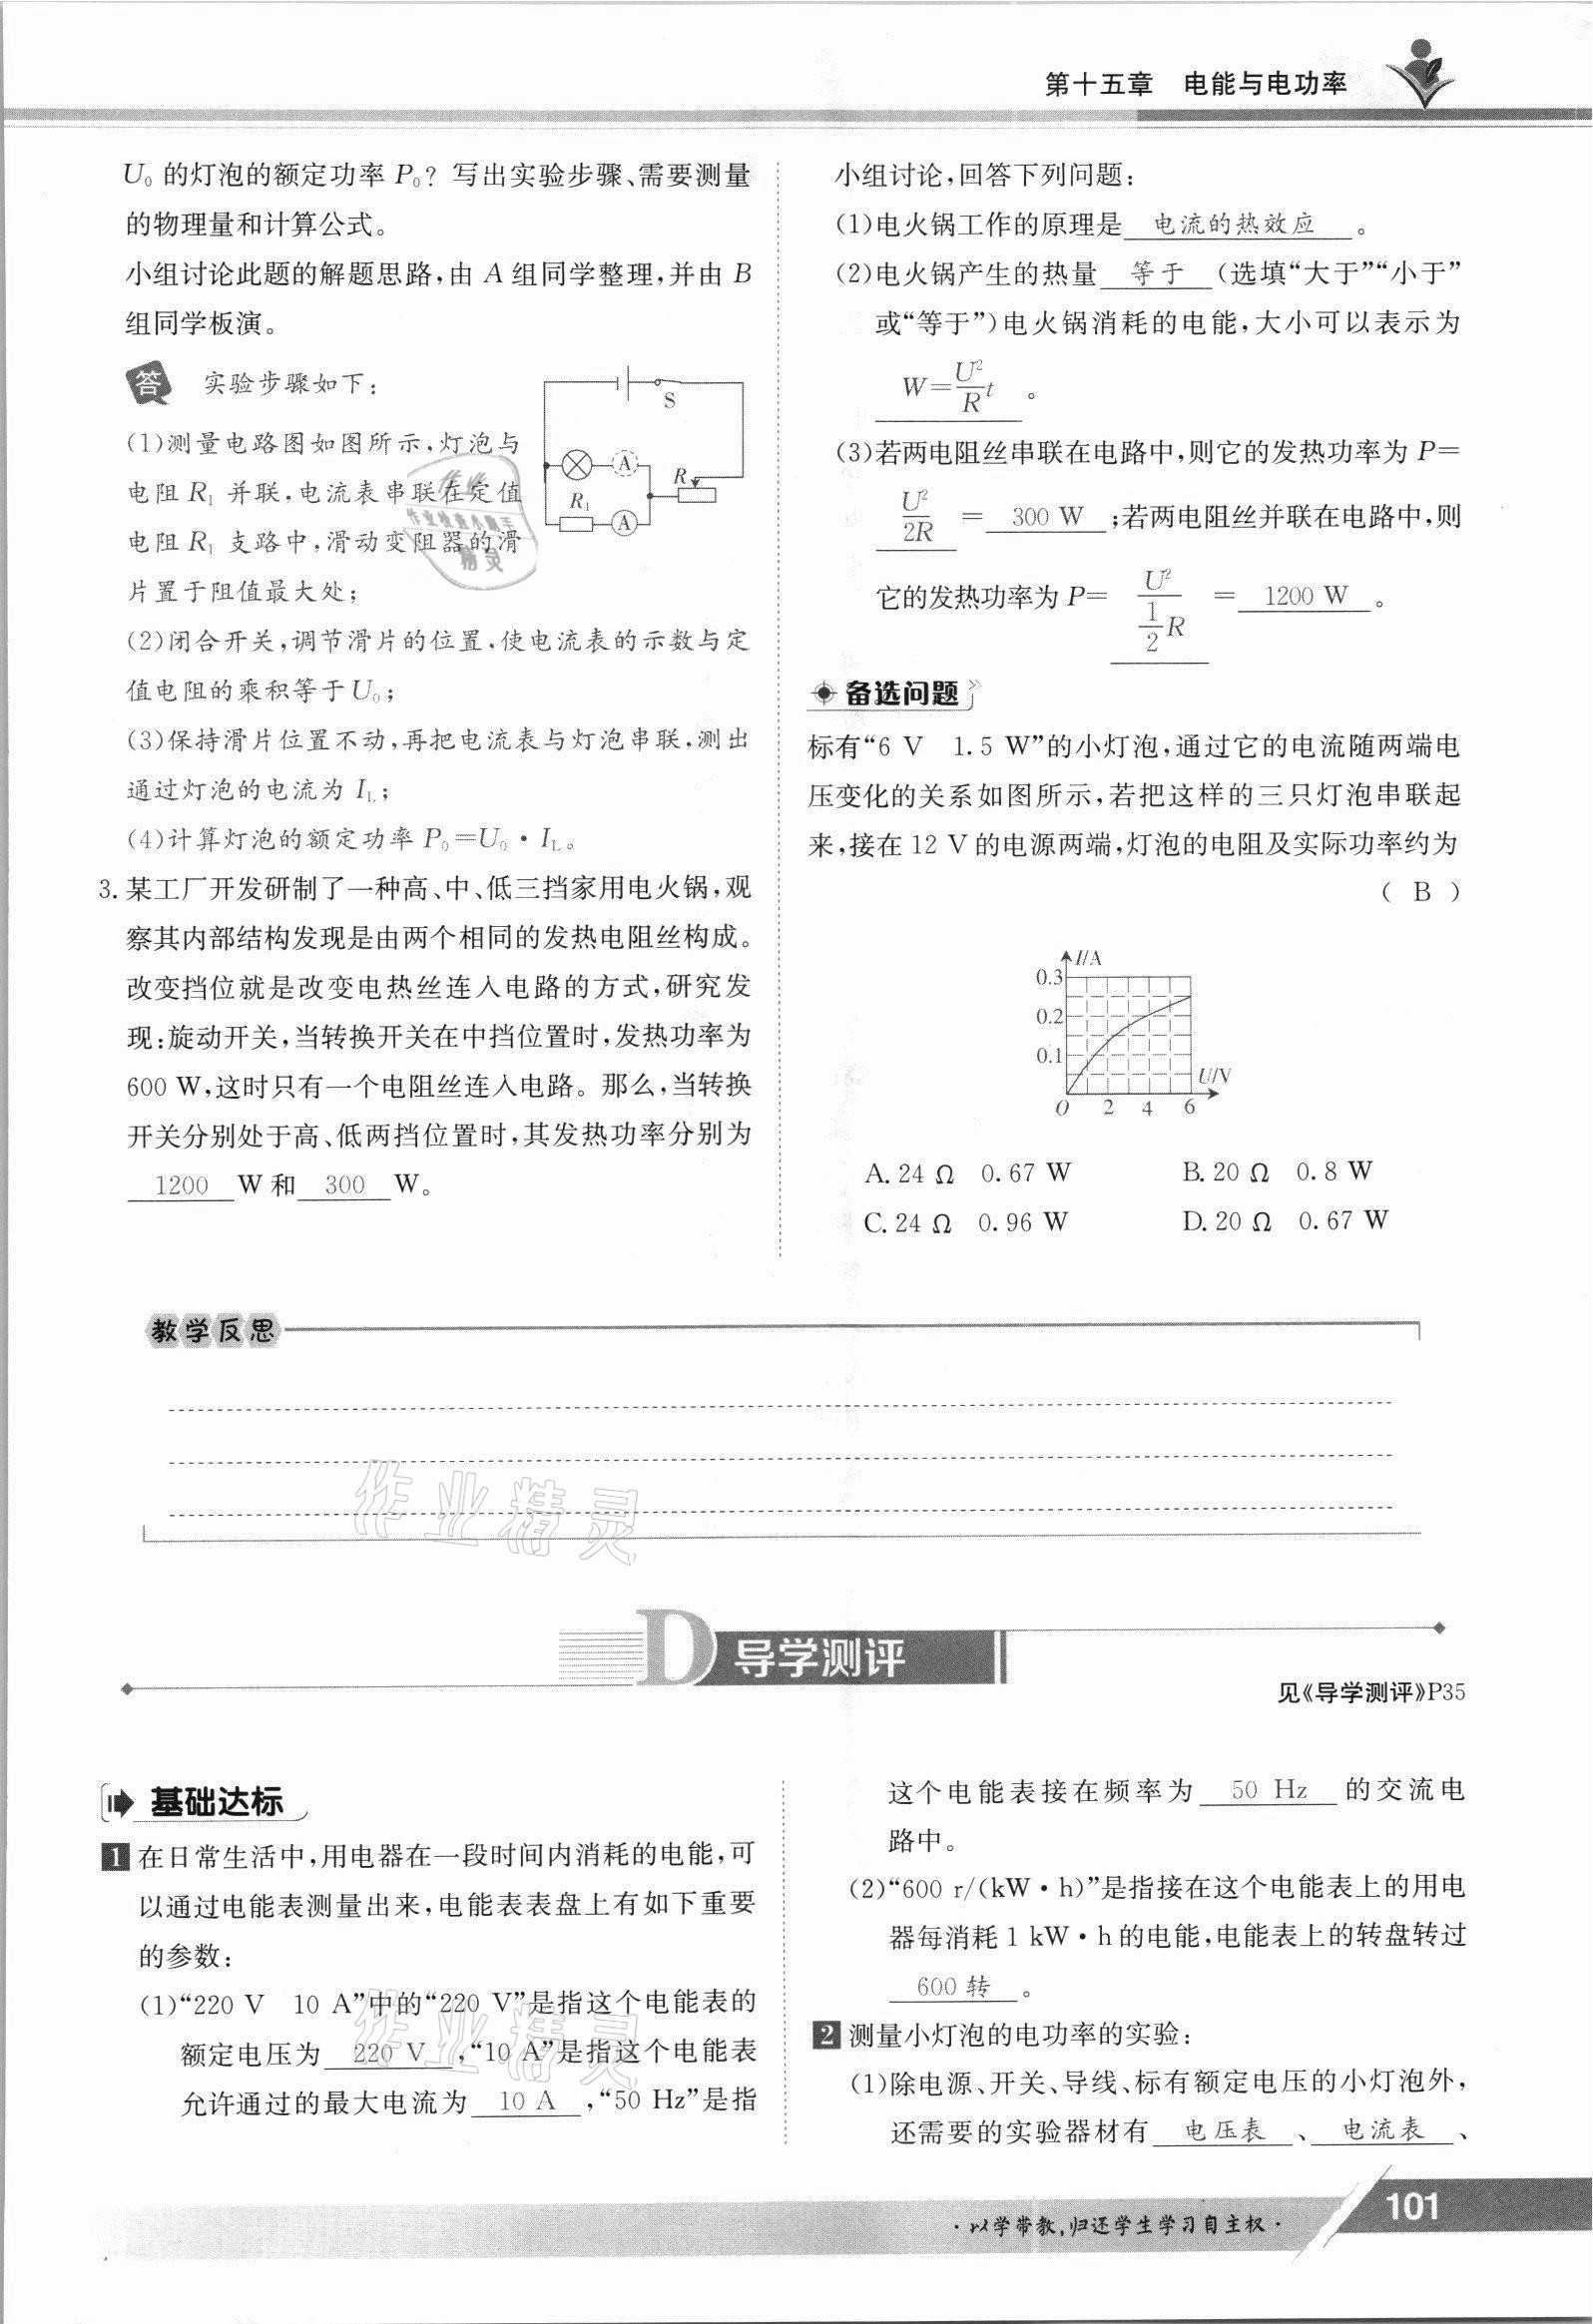 第十五章 电能与电功率
U₀ 的灯泡的额定功率 P₀? 写出实验步骤、需要测量
的物理量和计算公式。
小组讨论此题的解题思路,由 A 组同学整理,并由 B
组同学板演。
答 实验步骤如下:
(1)测量电路图如图所示,灯泡与
电阻 R₁ 并联,电流表串联在定值
电阻 R₁ 支路中,滑动变阻器的滑
片置于阻值最大处;
S
A
R
R₁
A
(2)闭合开关,调节滑片的位置,使电流表的示数与定
值电阻的乘积等于 U₀;
(3)保持滑片位置不动,再把电流表与灯泡串联,测出
通过灯泡的电流为 I_L;
(4)计算灯泡的额定功率 P₀=U₀·I_L。
3. 某工厂开发研制了一种高、中、低三挡家用电火锅,观
察其内部结构发现是由两个相同的发热电阻丝构成。
改变挡位就是改变电热丝连入电路的方式,研究发
现:旋动开关,当转换开关在中挡位置时,发热功率为
600 W,这时只有一个电阻丝连入电路。那么,当转换
开关分别处于高、低两挡位置时,其发热功率分别为
1200 W 和 300 W。
小组讨论,回答下列问题:
(1)电火锅工作的原理是 电流的热效应 。
(2)电火锅产生的热量 等于 (选填“大于”“小于”
或“等于”)电火锅消耗的电能,大小可以表示为
W=U²/R t 。
(3)若两电阻丝串联在电路中,则它的发热功率为 P=
U²/2R = 300 W ;若两电阻丝并联在电路中,则
它的发热功率为 P= U²/(1/2 R) = 1200 W 。
备选问题
标有“6 V 1.5 W”的小灯泡,通过它的电流随两端电
压变化的关系如图所示,若把这样的三只灯泡串联起
来,接在 12 V 的电源两端,灯泡的电阻及实际功率约为
( B )
I/A
0.3
0.2
0.1
U/V
O 2 4 6
A. 24 Ω 0.67 W B. 20 Ω 0.8 W
C. 24 Ω 0.96 W D. 20 Ω 0.67 W
教学反思
作业精灵
D 导学测评
见《导学测评》P35
基础达标
1 在日常生活中,用电器在一段时间内消耗的电能,可
以通过电能表测量出来,电能表表盘上有如下重要
的参数:
(1)“220 V 10 A”中的“220 V”是指这个电能表的
额定电压为 220 V ,“10 A”是指这个电能表
允许通过的最大电流为 10 A ,“50 Hz”是指
这个电能表接在频率为 50 Hz 的交流电
路中。
(2)“600 r/(kW·h)”是指接在这个电能表上的用电
器每消耗 1 kW·h 的电能,电能表上的转盘转过
600 转 。
2 测量小灯泡的电功率的实验:
(1)除电源、开关、导线、标有额定电压的小灯泡外,
还需要的实验器材有 电压表 、 电流表 、
作业精灵
·以学带教,归还学生学习自主权·
101